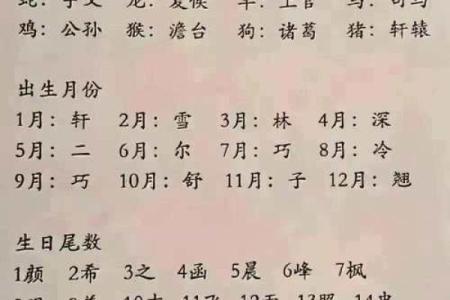 鸡：公孙 猴：澹台 狗：诸葛 猪：轩辕
出生月份
1月：轩 2月：雪 3月：林 4月：深
5月：二 6月：尔 7月：巧 8月：冷
9月：巧 10月：舒 11月：子 12月：翘
生日尾数
1颜 2希 3之 4函 5晨 6峰 7枫